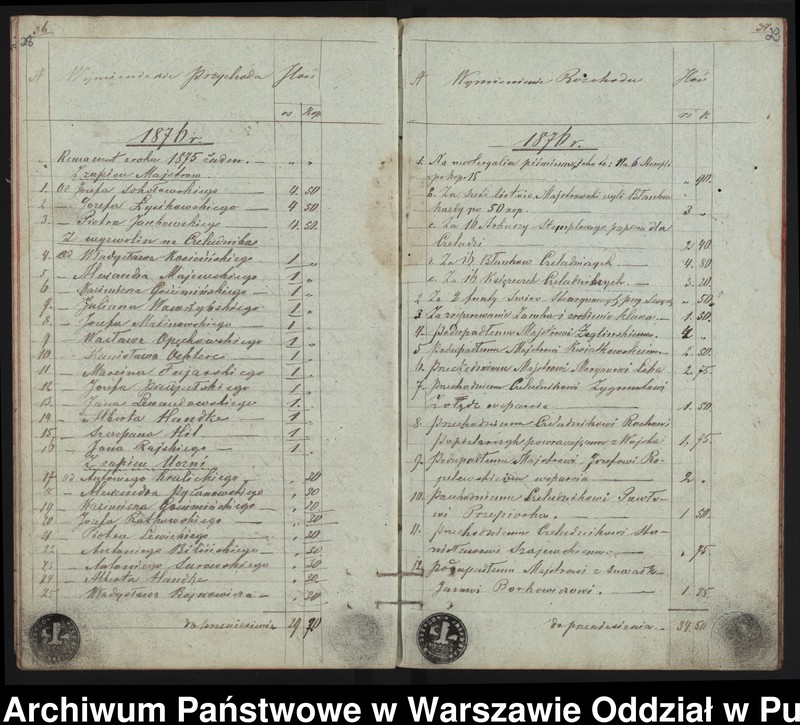 36
28
N Wymienienie Przychodu Ilość
rs Kop
1876 r.
Remanent z roku 1875 żaden. — " "
Z zapisu Majstrów
1. Od Józefa Sokołowskiego — 4. 50
2 — Józefa — 4 50
3. — Piotra Jachowskiego — 4. 50
Z wyzwolin na Czeladnika
4. Od Władysława Kosieńskiego 1 "
5 — Alexandra Majewskiego — 1 "
6 — Kazimierza Gościmińskiego — 1 "
7 — Juliana — 1 "
8 — Józefa Malinowskiego — 1
9 — Wacława Opęchowskiego 1
10 — Stanisława 1
11 — Marcina 1
12 — Józefa 1
13. — Jana Lewandowskiego 1.
14 — Alberta Handke — 1
15 — Szczepana — 1
16 — Jana Rajskiego — 1
Z zapisu Uczni
17 od Antoniego " 30
18 — Alexandra Chrzanowskiego " 30
19 — Kazimierza Gościmińskiego — " 30
20 — Józefa Rutkowskiego — " 30
21 — Piotra Lewickiego " 30
22 — Antoniego — " 30
23 — Antoniego Surowskiego — " 30
24 — Alberta Handke — " 30
25 — Władysława — " 30
do przeniesienia 29 70
37
29
N Wymienienie Rozchodu Ilość
rs k.
1876 r.
1. Na materyalia piśmienne, jako to: Na 6 Stempli
po kop 15 " 90.
b. Za sześć listów Majstrowskich czyli
po 50 kop. 3 "
c. Za 16 Arkuszy Stemplowego papieru dla
Czeladzi 2 40
d. Za 16 Blankow Czeladniczych. — 4. 80
e. Za 16 Książeczek Czeladniczych. — 3. 20
2 Za 2 funty Świec Stearynowych — " 50
3 Za reperowanie Zamka i zrobienie klucza — 1. 50.
4. Podupadłemu Majstrowi — 4 "
5 Podupadłemu Majstrowi Kwiatkowskiemu 2. 50
6. Przechodniemu Majstrowi 2. 75
7. Przechodniemu Czeladnikowi Zygmuntowi
wsparcie — 1. 50.
8. Przechodniemu Czeladnikowi
powracającemu z Wojska 1. 75.
9. Podupadłemu Majstrowi Józefowi
wsparcia — 2 "
10. Przechodniemu Czeladnikowi Pawło-
wi Przepiorka. — 1 50.
11. Przechodniemu Czeladnikowi Sta-
nisławowi — " 75
12 Podupadłemu Majstrowi z Suwałk
Janowi — 1. 25
do przeniesienia — 34. 50
Archiwum Państwowe w Warszawie Oddział w Pu